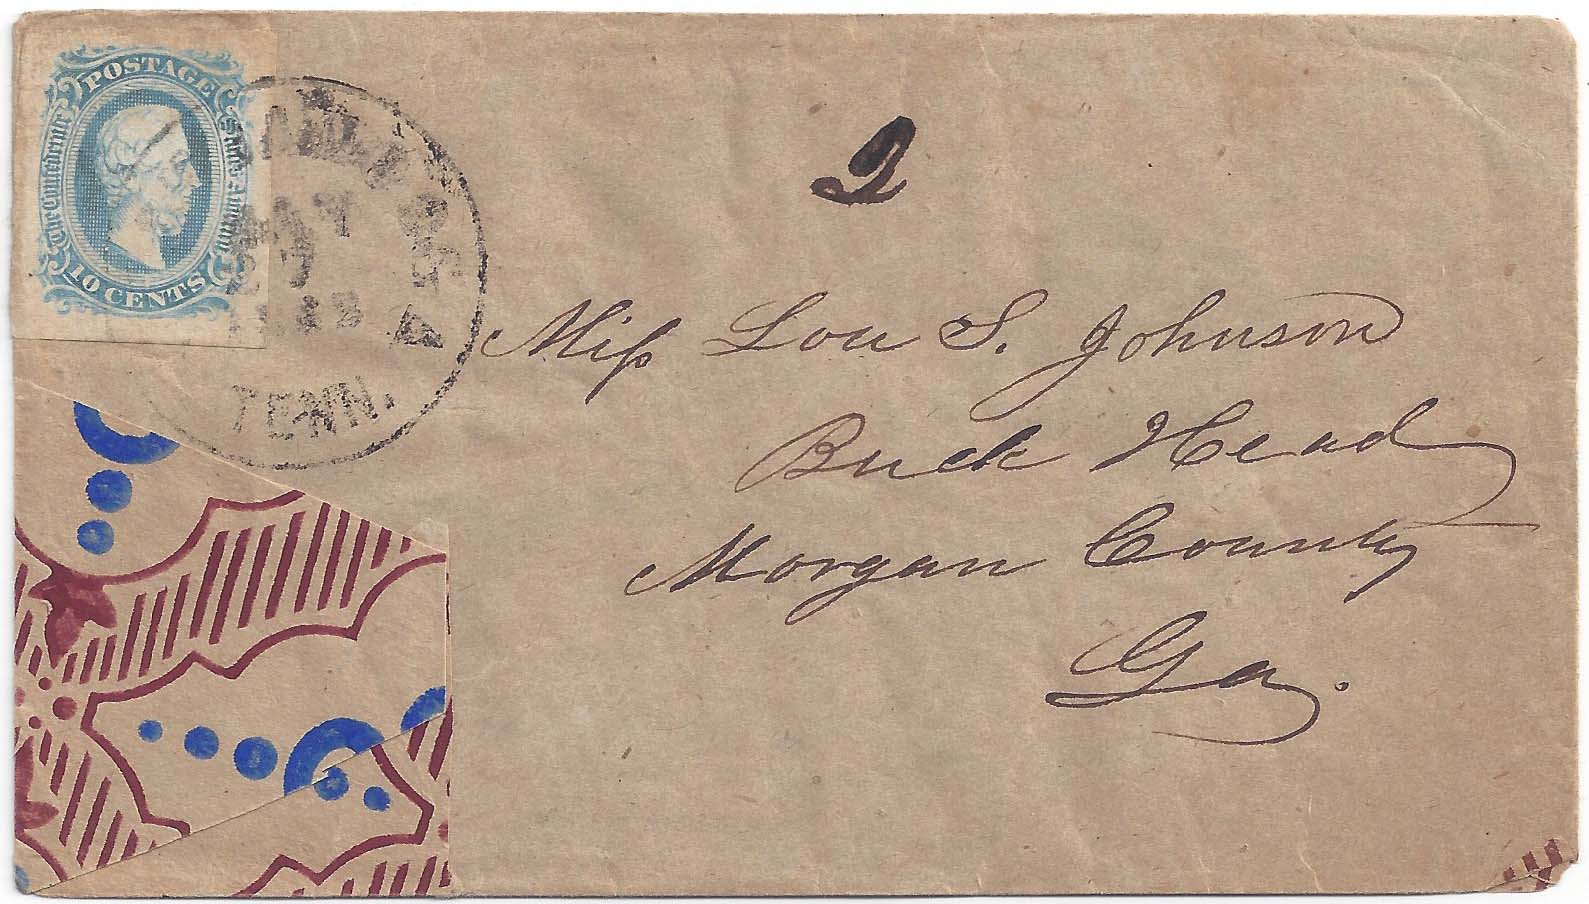 POSTAGE
The Confederate States of America
10 CENTS
MAY
TENN.
2
Miss Lou S. Johnson
Buck Head
Morgan County
Ga.